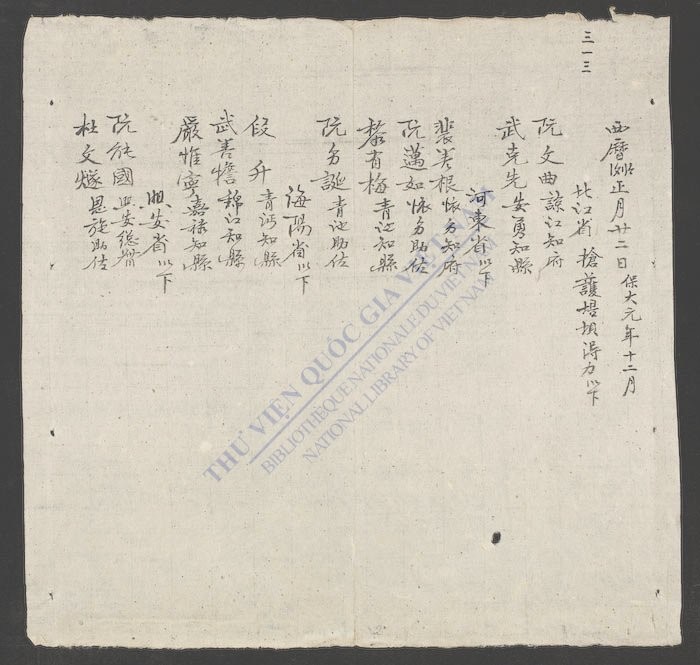 三一三
西曆 正月廿二日保大元年十二月
北江省搶護培垻得力以下
阮文曲諒江知府
武克先安勇知縣
河東省以下
裴善根懷方知府
阮邁如懷方助佐
黎有梅青沁知縣
阮 誕青沁助佐
海陽省以下
段升青沔知縣
武善 錦江知縣
嚴惟寧嘉祿知縣
興安省以下
阮能國興安總督
杜文燧恩施助佐
THƯ VIỆN QUỐC GIA VIỆT NAM
BIBLIOTHÈQUE NATIONALE DU VIETNAM
NATIONAL LIBRARY OF VIETNAM